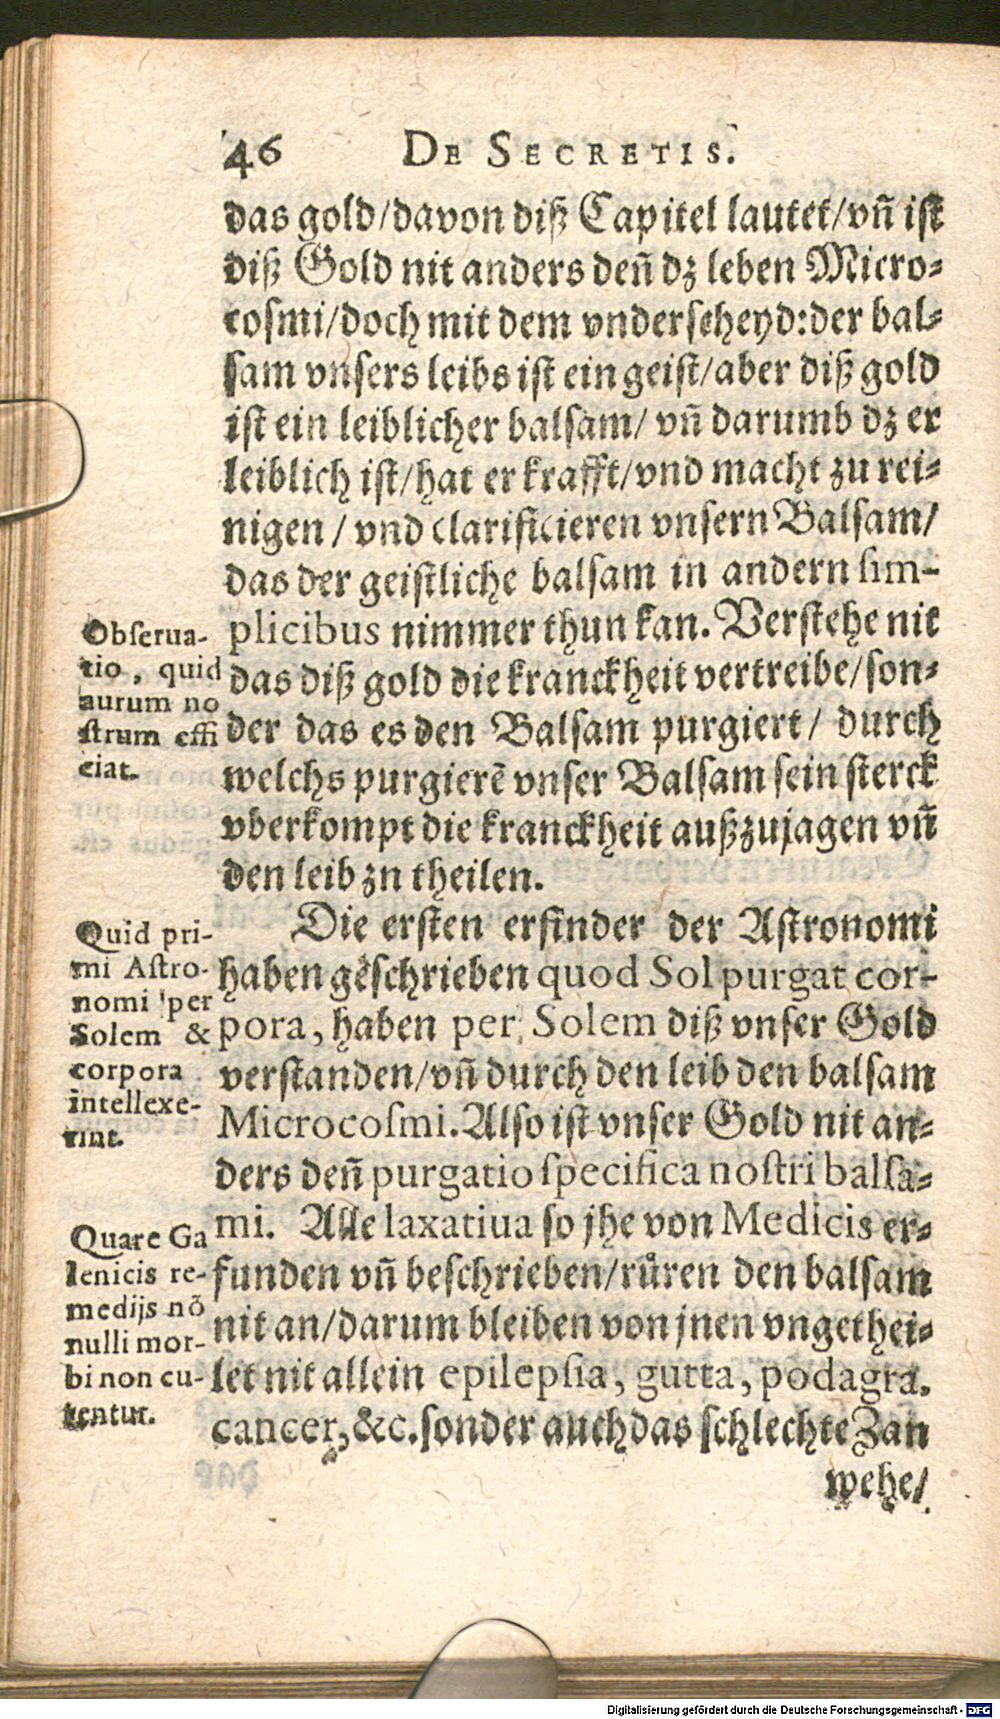 46 DE SECRETIS.
das gold/davon diß Capitel lautet/vñ ist
diß Gold nit anders deñ dz leben Micro-
cosmi/doch mit dem vnderscheyd:der bal-
sam vnsers leibs ist ein geist/aber diß gold
ist ein leiblicher balsam/ vñ darumb dz er
leiblich ist/hat er krafft/vnd macht zu rei-
nigen / vnd clarificieren vnsern Balsam/
das der geistliche balsam in andern sim-
plicibus nimmer thun kan. Verstehe nit
das diß gold die kranckheit vertreibe/son-
der das es den Balsam purgiert/ durch
welchs purgierẽ vnser Balsam sein sterck
vberkompt die kranckheit außzujagen vñ
den leib zn theilen.
Observa-
tio, quid
aurum no
strum effi
ciat.
Die ersten erfinder der Astronomi
haben geschrieben quod Sol purgat cor-
pora, haben per Solem diß vnser Gold
verstanden/vñ durch den leib den balsam
Microcosmi. Also ist vnser Gold nit an-
ders deñ purgatio specifica nostri balsa-
mi. Alle laxatiua so jhe von Medicis er-
funden vñ beschrieben/ruͤren den balsam
nit an/darum bleiben von jnen vngethei-
let nit allein epilepsia, gutta, podagra.
cancer, &c. sonder auch das schlechte Zan
wehe/
Quid pri-
mi Astro-
nomi per
Solem &
corpora
intellexe-
rint.
Quare Ga
lenicis re-
medijs nõ
nulli mor-
bi non cu-
rentur.
Digitalisierung gefördert durch die Deutsche Forschungsgemeinschaft - DFG